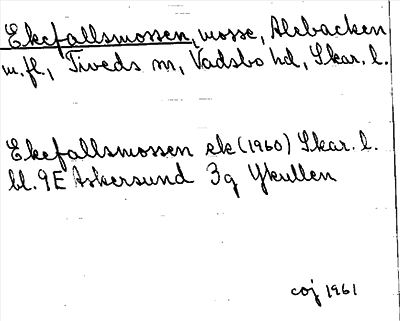 Ekefallsmossen, mosse, Alebacken
m.fl., Tiveds sn, Vadsbo hd, Skar. l.
Ekefallsmossen ek (1960) Skar. l.
bl. 9E Askersund 3g Ykullen
coj 1961